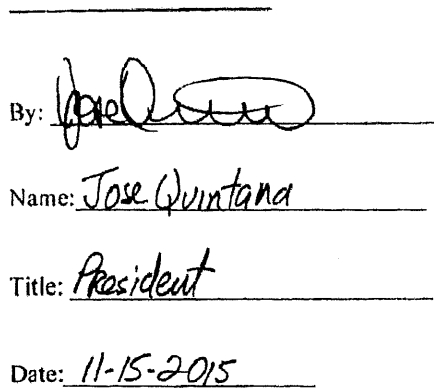 By: Jose Q
Name: Jose Quintana
Title: President
Date: 11-15-2015